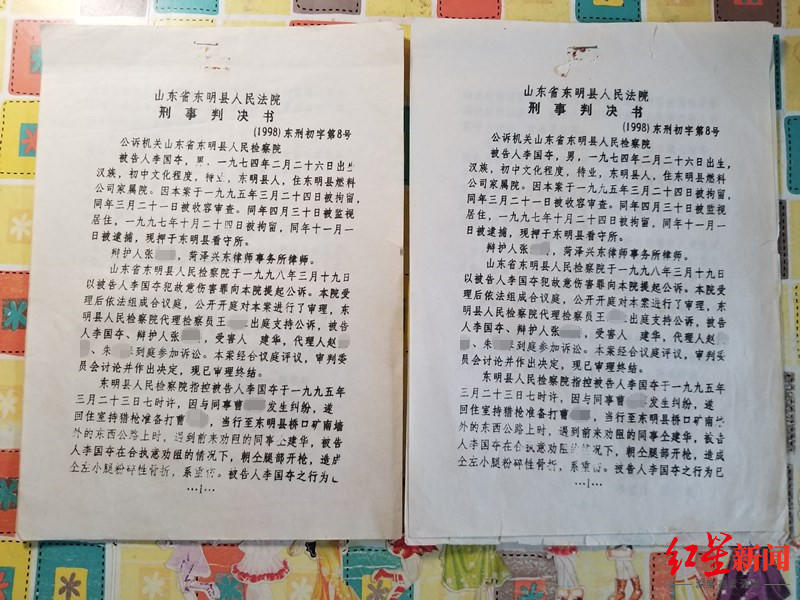 山东省东明县人民法院
刑事判决书
(1998)东刑初字第8号
公诉机关山东省东明县人民检察院
被告人李国夺，男，一九七四年二月二十六日出生，
汉族，初中文化程度，待业，东明县人，住东明县燃料
公司家属院。因本案于一九九五年三月二十四日被拘留，
同年三月二十一日被收容审查。同年四月三十日被监视
居住，一九九七年十月二十四日被拘留，同年十一月一
日被逮捕，现押于东明县看守所。
辩护人张，菏泽兴东律师事务所律师。
山东省东明县人民检察院于一九九八年三月十九日
以被告人李国夺犯故意伤害罪向本院提起公诉。本院受
理后依法组成合议庭，公开开庭对本案进行了审理，东
明县人民检察院代理检察员王出庭支持公诉，被告
人李国夺、辩护人张，受害人 建华，代理人赵
、朱到庭参加诉讼。本案经合议庭评议，审判委
员会讨论并作出决定，现已审理终结。
东明县人民检察院指控被告人李国夺于一九九五年
三月二十三日七时许，因与同事曹发生纠纷，遂
回住室持猎枪准备打曹，当行至东明县桥口矿南墙
外的东西公路上时，遇到前来劝阻的同事仝建华，被告
人李国夺在仝执意劝阻的情况下，朝仝腿部开枪，造成
仝左小腿粉碎性骨折，系重伤。被告人李国夺之行为已
—1—
山东省东明县人民法院
刑事判决书
(1998)东刑初字第8号
公诉机关山东省东明县人民检察院
被告人李国夺，男，一九七四年二月二十六日出生，
汉族，初中文化程度，待业，东明县人，住东明县燃料
公司家属院。因本案于一九九五年三月二十四日被拘留，
同年三月二十一日被收容审查。同年四月三十日被监视
居住，一九九七年十月二十四日被拘留，同年十一月一
日被逮捕，现押于东明县看守所。
辩护人张，菏泽兴东律师事务所律师。
山东省东明县人民检察院于一九九八年三月十九日
以被告人李国夺犯故意伤害罪向本院提起公诉。本院受
理后依法组成合议庭，公开开庭对本案进行了审理，东
明县人民检察院代理检察员王出庭支持公诉，被告
人李国夺、辩护人张，受害人 建华，代理人赵
、朱到庭参加诉讼。本案经合议庭评议，审判委
员会讨论并作出决定，现已审理终结。
东明县人民检察院指控被告人李国夺于一九九五年
三月二十三日七时许，因与同事曹发生纠纷，遂
回住室持猎枪准备打曹，当行至东明县桥口矿南墙
外的东西公路上时，遇到前来劝阻的同事仝建华，被告
人李国夺在仝执意劝阻的情况下，朝仝腿部开枪，造成
仝左小腿粉碎性骨折，系重伤。被告人李国夺之行为已
—1—
红星新闻